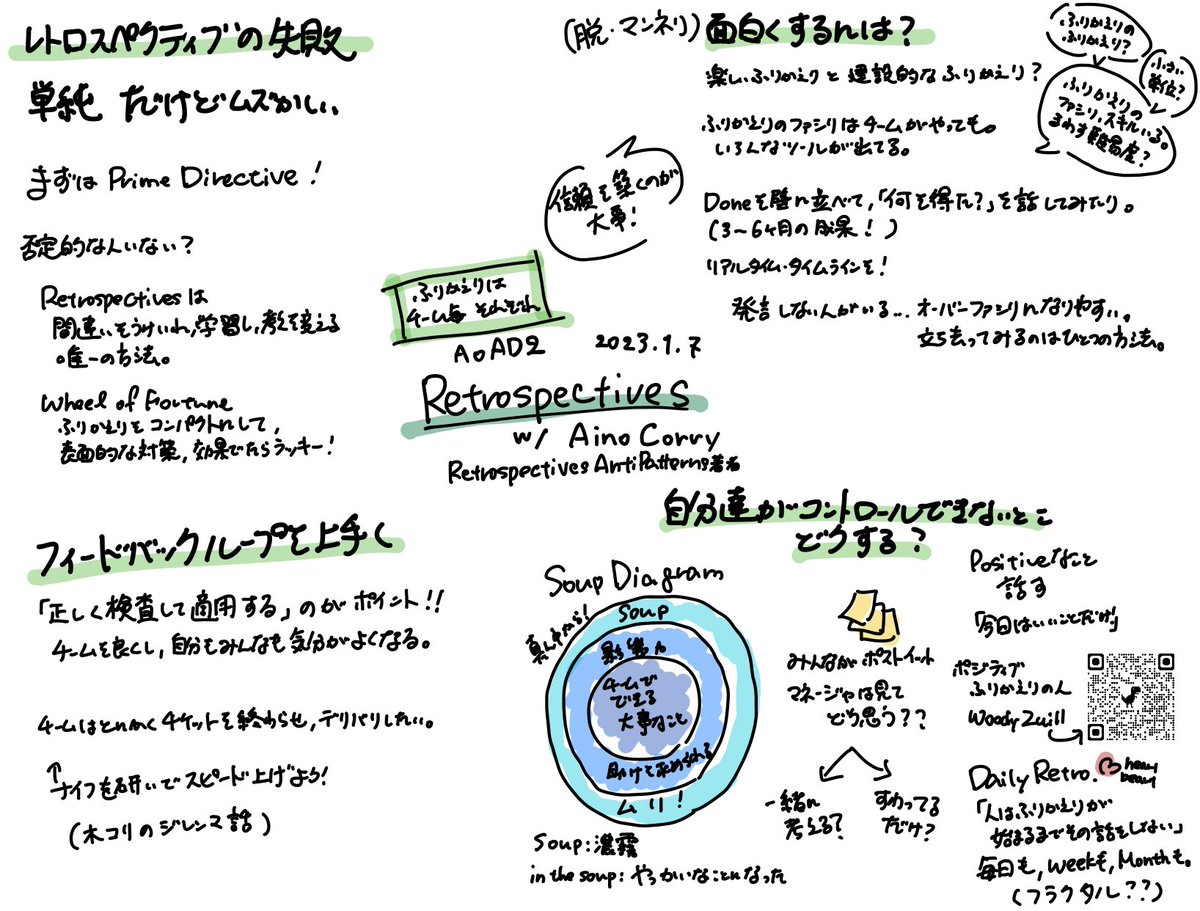 レトロスペクティブの失敗
単純 だけどムズかしい
まずは Prime Directive!
否定的な人いない?
Retrospectivesは
間違いをうけいれ,学習し,考えを変える
唯一の方法。
Wheel of Fortune
ふりかえりを コンパクトにして,
表面的な対策,効果でたらラッキー!
(脱・マンネリ) 面白くするんは?
楽しいふりかえり と 建設的な ふりかえり?
ふりかえりのファシリは チームがやっても。
いろんなツールが出てる。
Doneを壁に並べて,「何を得た?」を話してみたり。
(3〜6ヶ月の成果!)
リアルタイム・タイムラインを!
発言しない人がいる... オーバーファシリになりやすい。
立ち去ってみるのはひとつの方法。
ふりかえりの
ふりかえり?
小さい
単位?
ふりかえりの
ファシリ,スキルいる。
るわす難易度?
信頼を築くのが
大事!
ふりかえりは
チーム毎 それぞれ
AoAD2
2023.1.7
Retrospectives
w/ Aino Corry
Retrospectives AntiPatterns著者
フィードバックループを上手く
「正しく検査して適用する」のがポイント!!
チームを良くし,自分もみんなも気分がよくなる。
チームはとにかくチケットを終わらせ,デリバリしたい。
↑
ナイフを研いでスピード上げよう!
(木コリのジレンマ話)
自分達がコントロールできないとこ
どうする?
Soup Diagram
真ん中から!
Soup
影響力
チームで
できる
大事なこと
助けを求められる
ムリ!
Soup: 濃霧
in the soup: やっかいなことになった
みんながポストイット
マネージャは見て
どう思う??
一緒に
考える?
すわってる
だけ?
Positiveなこと
話す
「今日はいいことだけ!」
ポジティブ
ふりかえりの人
Woody Zuill
Daily Retro.
heavy
「人はふりかえりが
始まるまでその話をしない」
毎日も, weekも, Monthも。
(フラクタル??)